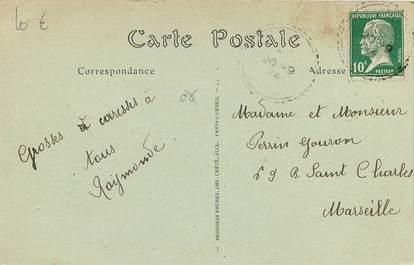 10 €
Carte Postale
Correspondance
Adresse
RÉPUBLIQUE FRANÇAISE
10c
PASTEUR
08
Grosses caresses à
tous
Raymonde
Madame et Monsieur
Perrin Gouron
59 B. Saint Charles
Marseille